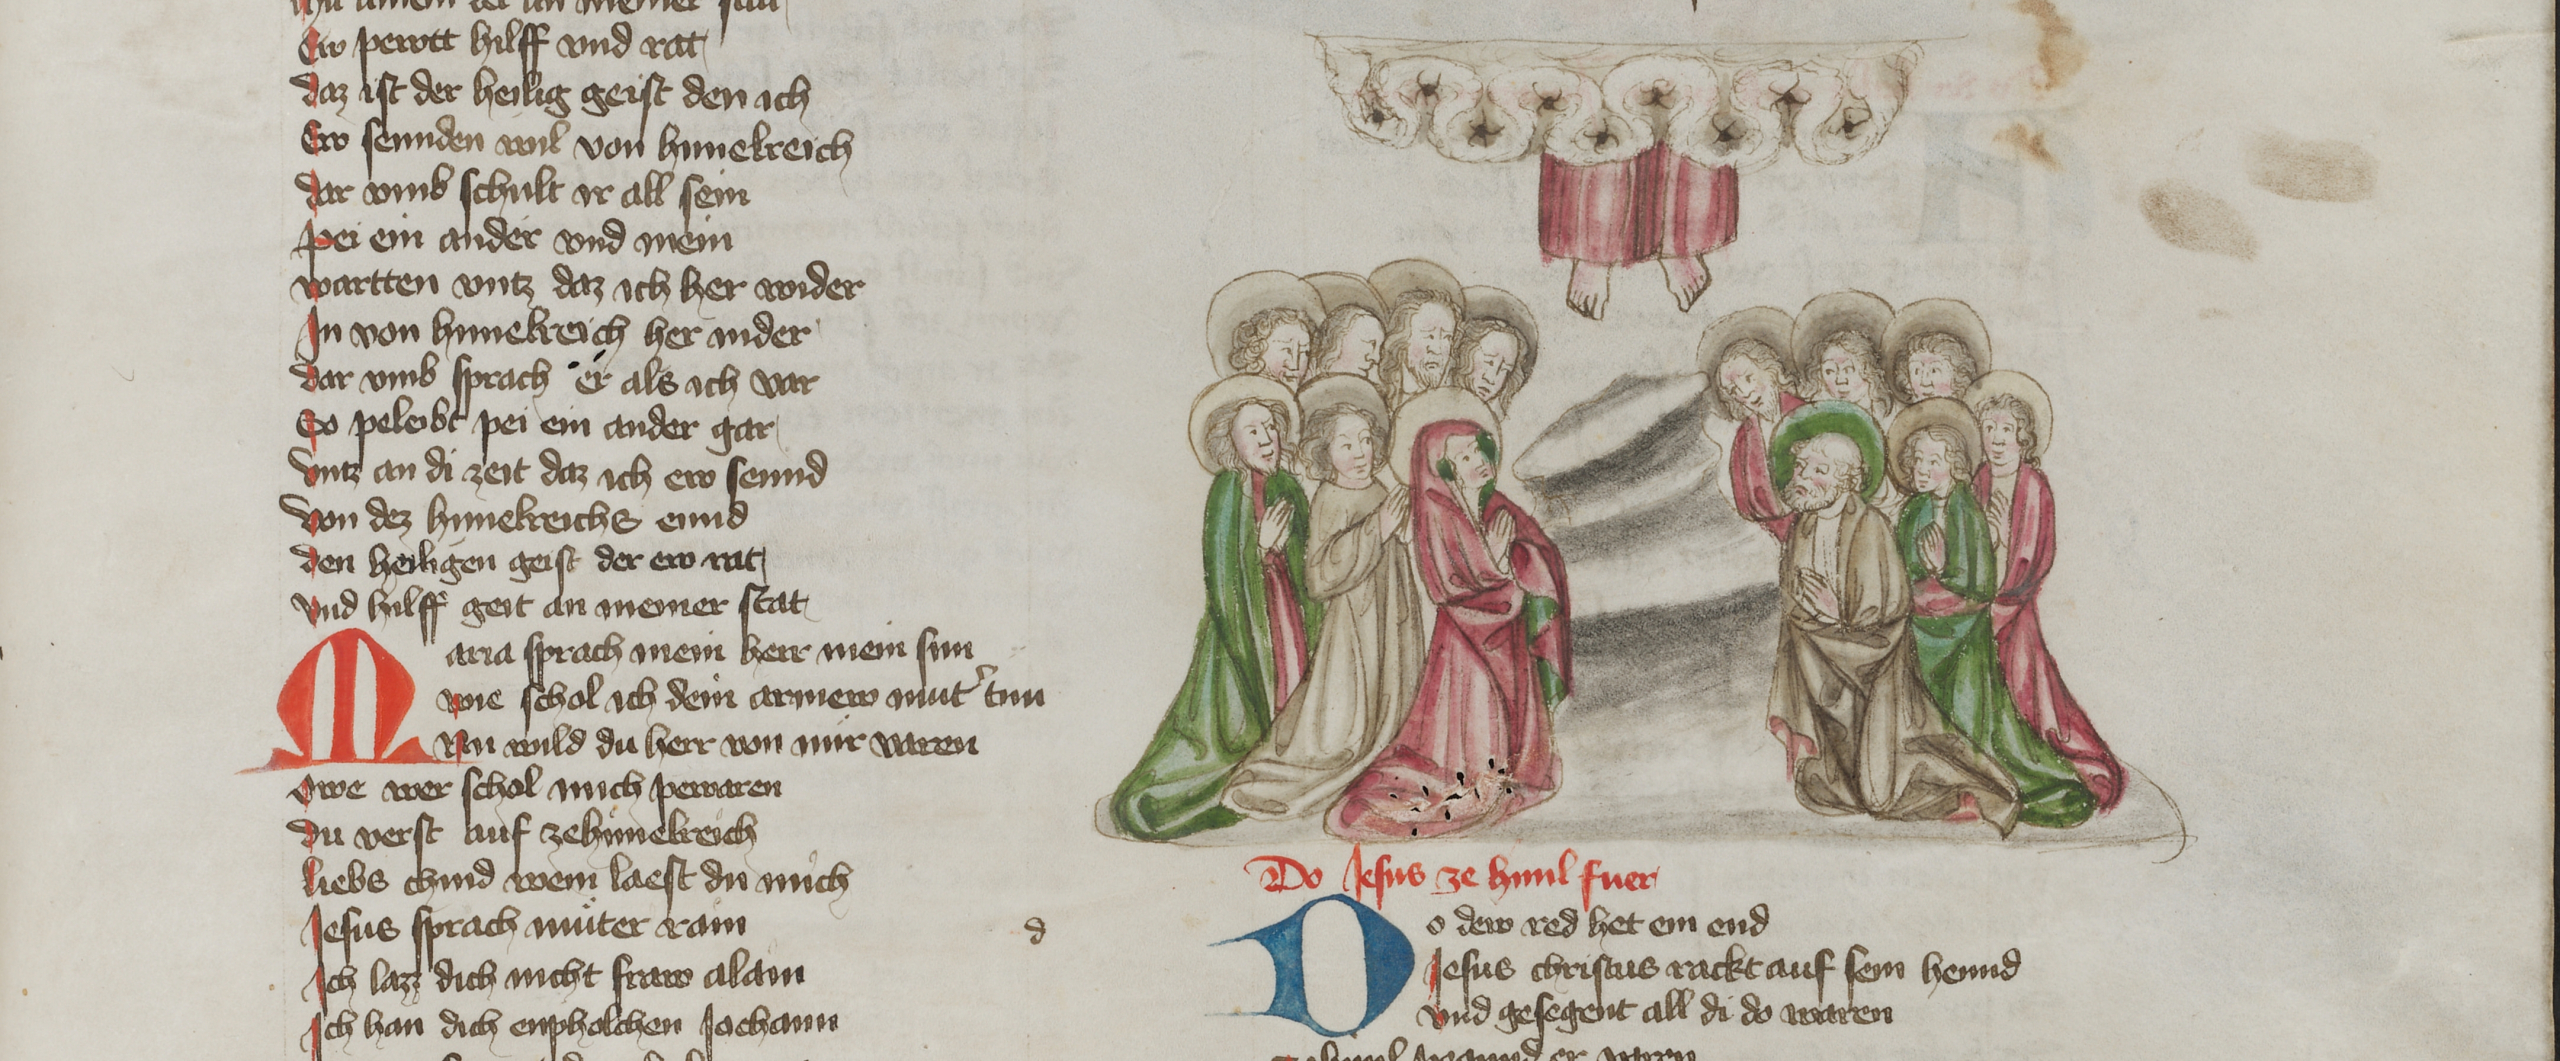 ew perott hilff vnd rat
daz ist der heilig geist den ich
Ew sennden wil von himelreich
dar vmb schult ir all sein
pei ein ander vnd mein
wartten vntz daz ich her wider
In von himelreich her nider
dar vmb sprach er als ich var
So peleibt pei ein ander gar
vntz an di zeit daz ich ew sennd
von dez himelreichs ennd
den heiligen geist der ew rat
vnd hilff geit an meiner stat
Maria sprach mein herr mein sun
wie schol ich dein armew mut' tun
Nu wild du herr von mir varen
owe wer schol mich pewaren
du verst auf ze himelreich
liebs chind wem laest du mich
Jesus sprach muter rain
Ich lazz dich nicht fraw alain
Ich han dich enpholchen Jochann
d
Do Jesus ze himl fuer
Do dew red het ein end
Jesus christus rackt auf sein hennd
vnd gesegent all di do waren